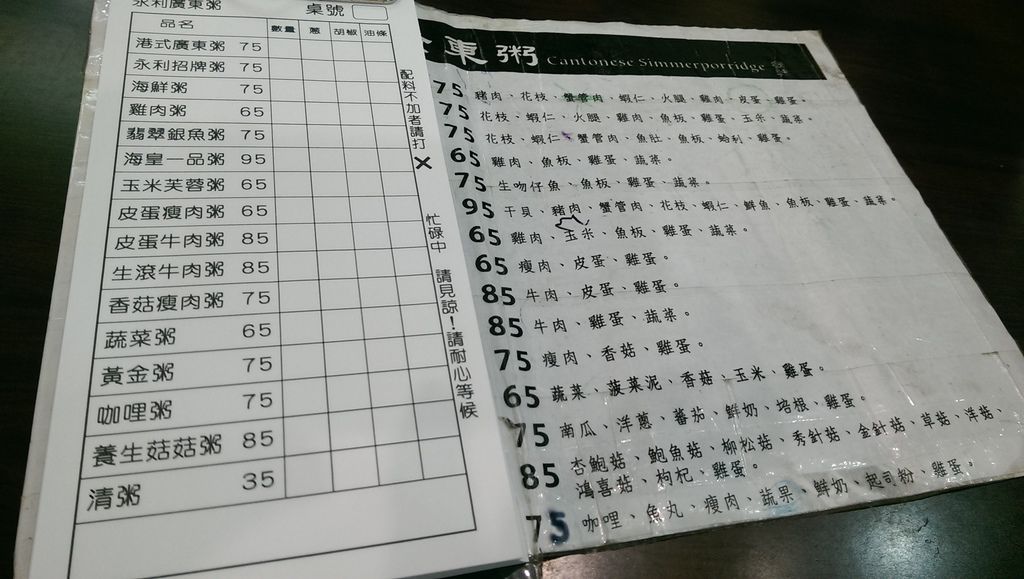 永利廣東粥 桌號
品名 數量 蔥 胡椒 油條
港式廣東粥 75
永利招牌粥 75
海鮮粥 75
雞肉粥 65
翡翠銀魚粥 75
海皇一品粥 95
玉米芙蓉粥 65
皮蛋瘦肉粥 65
皮蛋牛肉粥 85
生滾牛肉粥 85
香菇瘦肉粥 75
蔬菜粥 65
黃金粥 75
咖哩粥 75
養生菇菇粥 85
清粥 35
配料不加者請打✕ 忙碌中 請見諒！請耐心等候
東粥 Cantonese Simmerporridge
75 豬肉、花枝、蟹管肉、蝦仁、火腿、雞肉、皮蛋、雞蛋。
75 花枝、蝦仁、火腿、雞肉、魚板、雞蛋、玉米、蔬菜。
75 花枝、蝦仁、蟹管肉、魚肚、魚板、蛤利、雞蛋。
65 雞肉、魚板、雞蛋、蔬菜。
75 生吻仔魚、魚板、雞蛋、蔬菜。
95 干貝、豬肉、蟹管肉、花枝、蝦仁、鮮魚、魚板、雞蛋、蔬菜。
65 雞肉、玉米、魚板、雞蛋、蔬菜。
65 瘦肉、皮蛋、雞蛋。
85 牛肉、皮蛋、雞蛋。
85 牛肉、雞蛋、蔬菜。
75 瘦肉、香菇、雞蛋。
65 蔬菜、菠菜泥、香菇、玉米、雞蛋。
75 南瓜、洋蔥、蕃茄、鮮奶、培根、雞蛋。
85 杏鮑菇、鮑魚菇、柳松菇、秀針菇、金針菇、草菇、洋菇、
鴻喜菇、枸杞、雞蛋。
75 咖哩、魚丸、瘦肉、蔬果、鮮奶、起司粉、雞蛋。